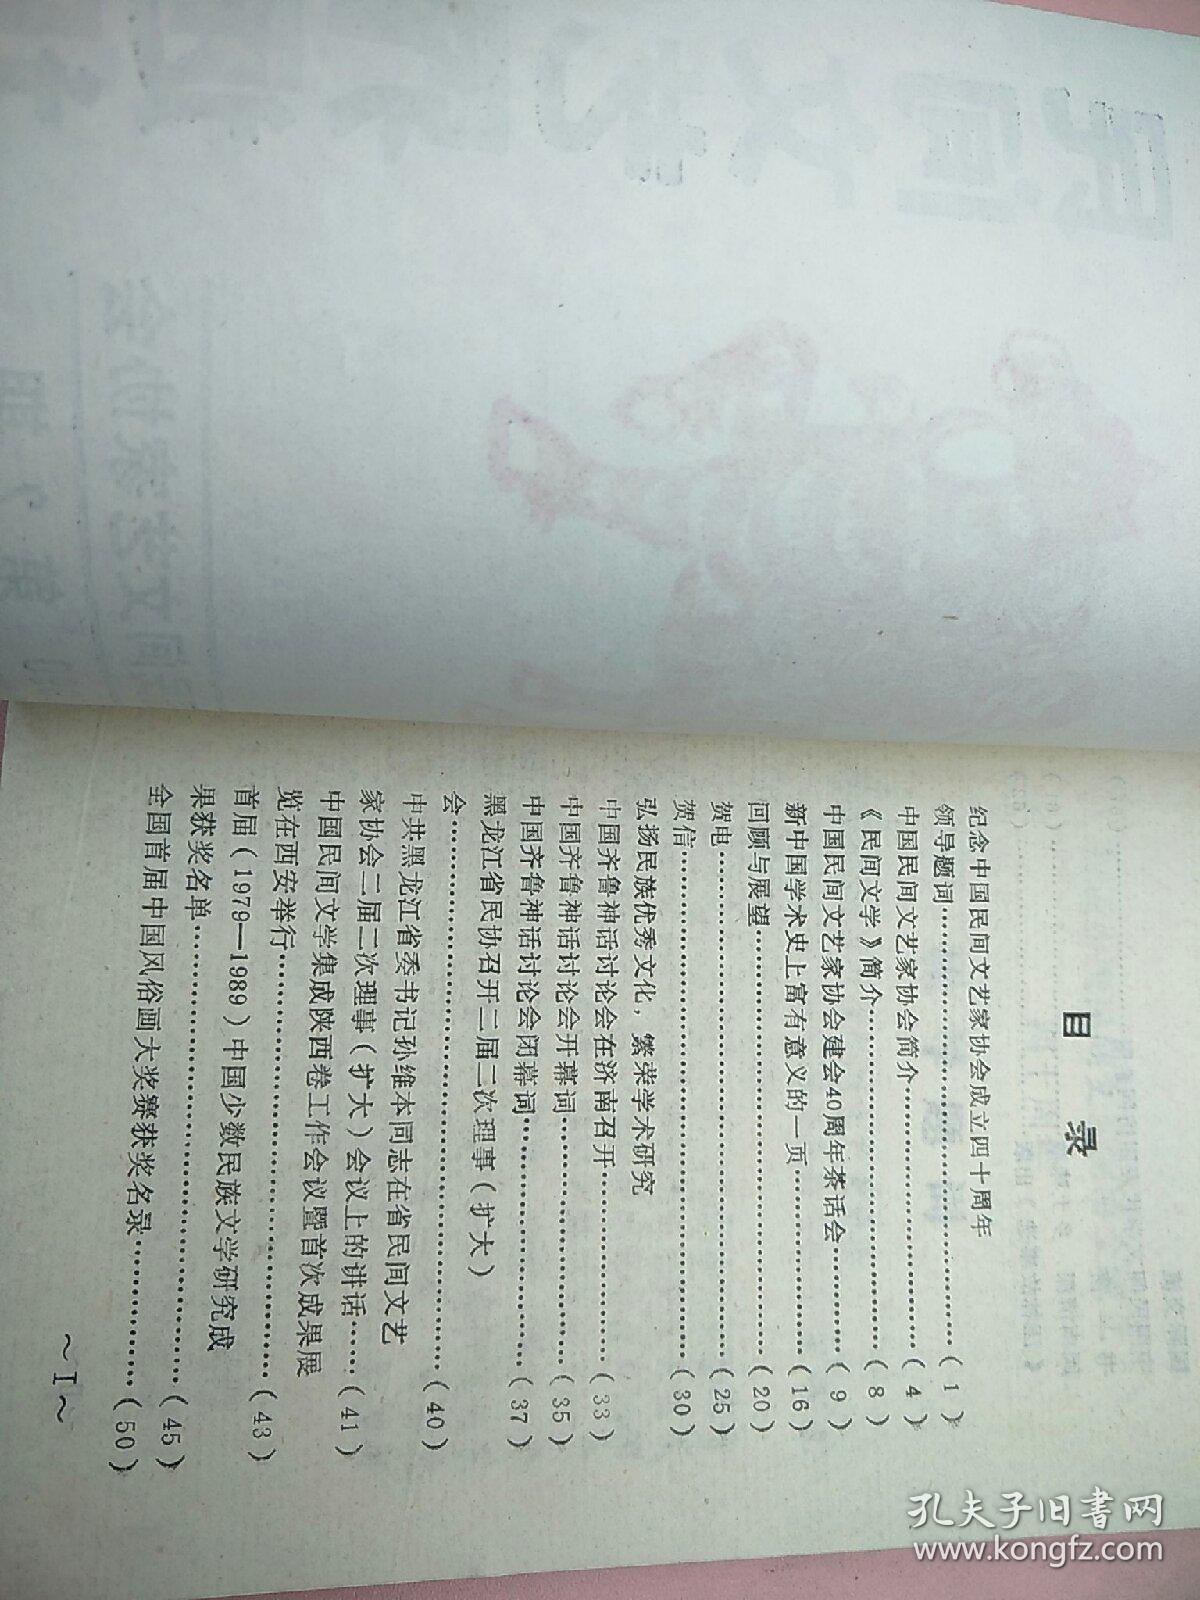 目 录
纪念中国民间文艺家协会成立四十周年
领导题词…………………………(1)
中国民间文艺家协会简介…………………(4)
《民间文学》简介…………………………(8)
中国民间文艺家协会建会40周年茶话会………(9)
新中国学术史上富有意义的一页……………(16)
回顾与展望…………………………(20)
贺电…………………………(25)
贺信…………………………(30)
弘扬民族优秀文化，繁荣学术研究
中国齐鲁神话讨论会在济南召开……………(33)
中国齐鲁神话讨论会开幕词……………(35)
中国齐鲁神话讨论会闭幕词……………(37)
黑龙江省民协召开二届二次理事(扩大)
会…………………………(40)
中共黑龙江省委书记孙维本同志在省民间文艺
家协会二届二次理事(扩大)会议上的讲话……(41)
中国民间文学集成陕西卷工作会议暨首次成果展
览在西安举行…………………………(43)
首届(1979—1989)中国少数民族文学研究成
果获奖名单…………………………(45)
全国首届中国风俗画大奖赛获奖名录…………(50)
～I～
孔夫子旧书网
www.kongfz.com